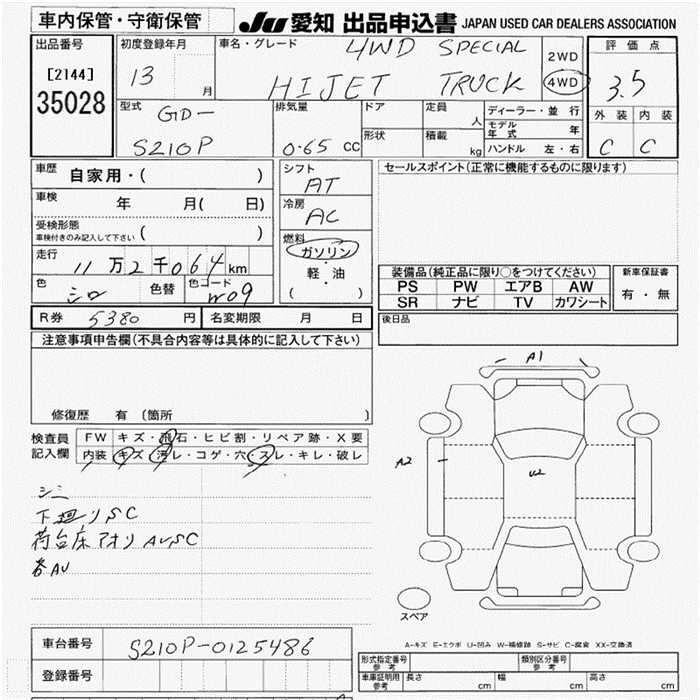 車内保管・守衛保管
JU 愛知 出品申込書 JAPAN USED CAR DEALERS ASSOCIATION
出品番号
[2144]
35028
初度登録年月
13 月
車名・グレード
4WD SPECIAL
HIJET TRUCK
2WD
4WD
評価点
3.5
外装 内装
C C
型式
GD-
S210P
排気量
0.65 CC
ドア
形状
定員
人
積載
kg
ディーラー・並行
モデル年式 年
ハンドル 左・右
車歴
自家用・( )
車検
年 月( 日)
受検形態
車検付きのみ記入して下さい ( )
走行
11万2千064km
色
シロ
色替
色コード
W09
シフト
AT
冷房
AC
燃料
ガソリン
軽・油
( )
セールスポイント(正常に機能するものに限ります)
装備品(純正品に限り○をつけてください)
PS PW エアB AW
SR ナビ TV カワシート
新車保証書
有・無
R券 5380 円
名変期限 月 日
後日品
注意事項申告欄(不具合内容等は具体的に記入して下さい)
修復歴 有 〔箇所 〕
検査員
記入欄
FW キズ・飛石・ヒビ割・リペア跡・X要
内装 キズ・汚レ・コゲ・穴・スレ・キレ・破レ
シミ
下廻りSC
荷台床アオリAUSC
各AU
A1
A2
U2
スペア
A-キズ E-エクボ U-凹み W-補修跡 S-サビ C-腐食 XX-交換済
車台番号
S210P-0125486
登録番号
形式指定番号
参考
類別区分番号
参考
車庫証明用
参考
長さ cm
幅 cm
高さ cm